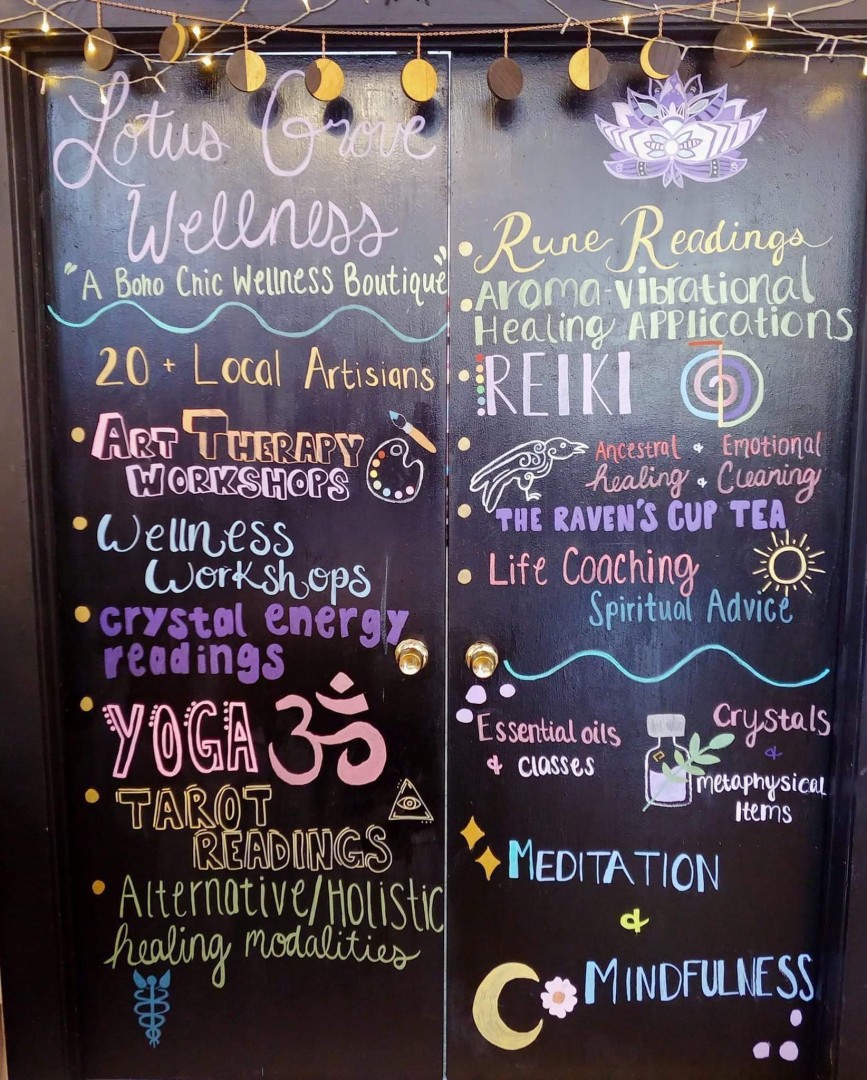 Lotus Grove
Wellness
"A Boho Chic Wellness Boutique"
20 + Local Artisians
ART THERAPY
WORKSHOPS
Wellness
Workshops
crystal energy
readings
YOGA ॐ
TAROT
READINGS
Alternative/Holistic
healing modalities
Rune Readings
Aroma-vibrational
Healing Applications
REIKI
Ancestral & Emotional
healing & Cleaning
THE RAVEN'S CUP TEA
Life Coaching
Spiritual Advice
Essential oils
& classes
Crystals
&
metaphysical
Items
MEDITATION
&
MINDFULNESS